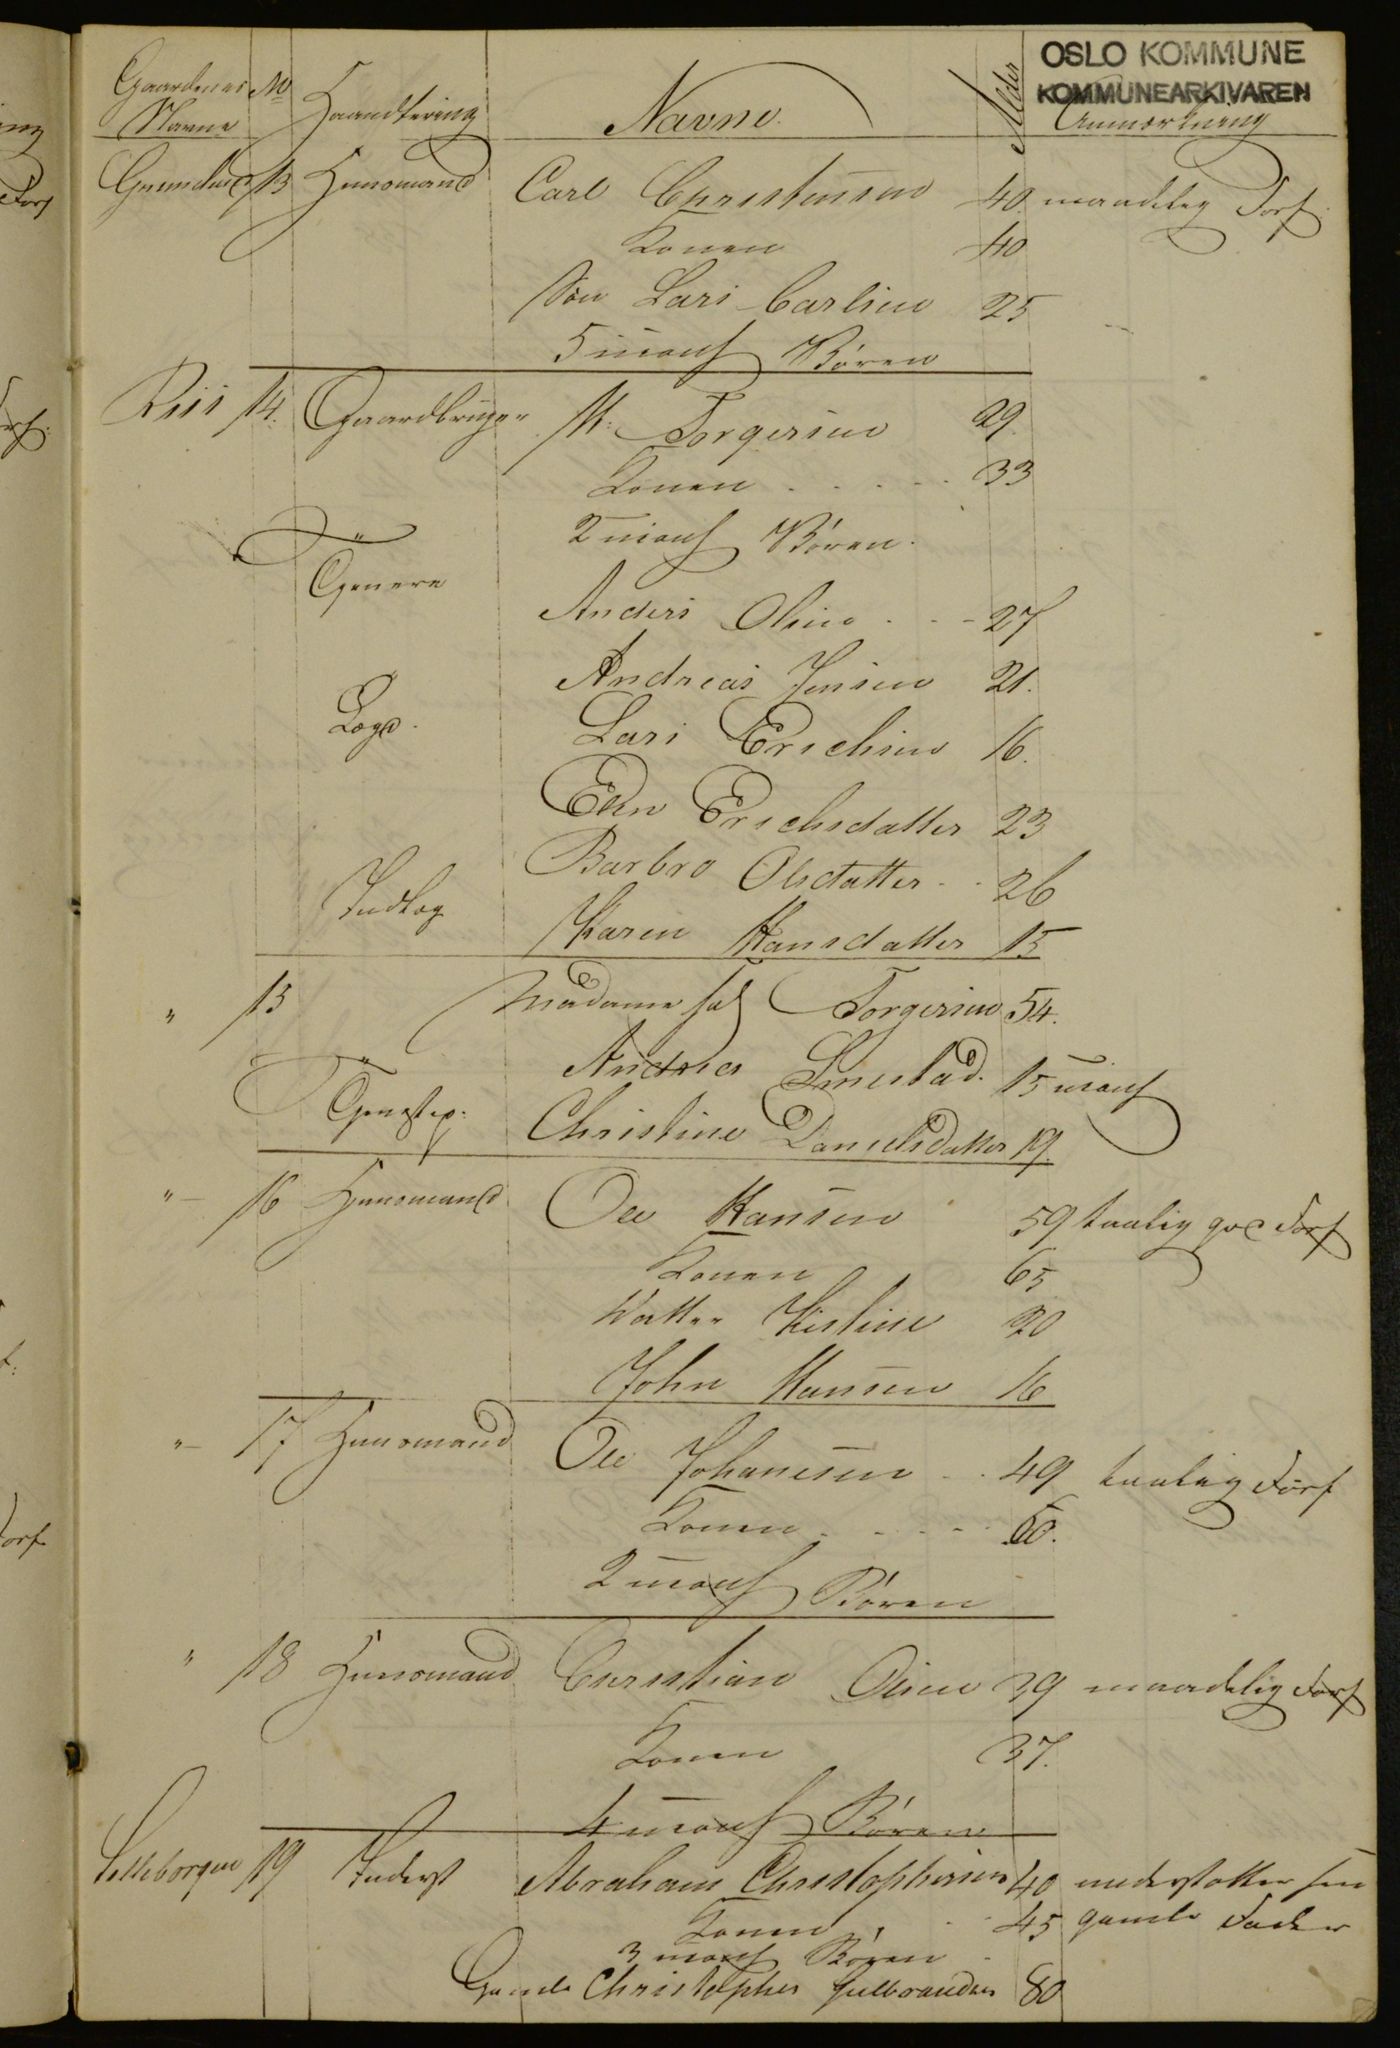 OSLO KOMMUNE
KOMMUNEARKIVAREN
Gaardenes Navne No Haandtering Navne Alder Anmærkning
13 Huusmand Carl Christensen 40 maadelig Forf:
Konen 40
Søn Lars Carlsen 25
5 uconf Børen
Riis 14. Gaardbruger H: Torgersen 29
Konen 33
2 uconf Børen
Tjenere Anders Olsen 27
Andreas Jensen 21.
Lægd. Lars Erichsen 16.
Elen Erichsdatter 23
Barbro Olsdatter 26
Indlag Karen Hansdatter 15
" 15 Madame sal Torgersen 54.
Andrea Smestad. 15 uconf
Christine Danielsdatter 19.
" 16 Huusmand Ole Hansen 59 taalig god Forf
Konen 65
Datter Kistine 20
John Hansen 16
" 17 Huusmand Ole Johanesen 49 taalig Forf
Konen 50.
2 uconf Børen
" 18 Huusmand Christian Olsen 39 maadelig Forf
Konen 37.
4 uconf Børen
19 Inderst Abraham Christophersen 40 understøtter sin
Konen 45 gamle Fader
3 uconf Børen
Gamle Christopher Gulbrandsen 80